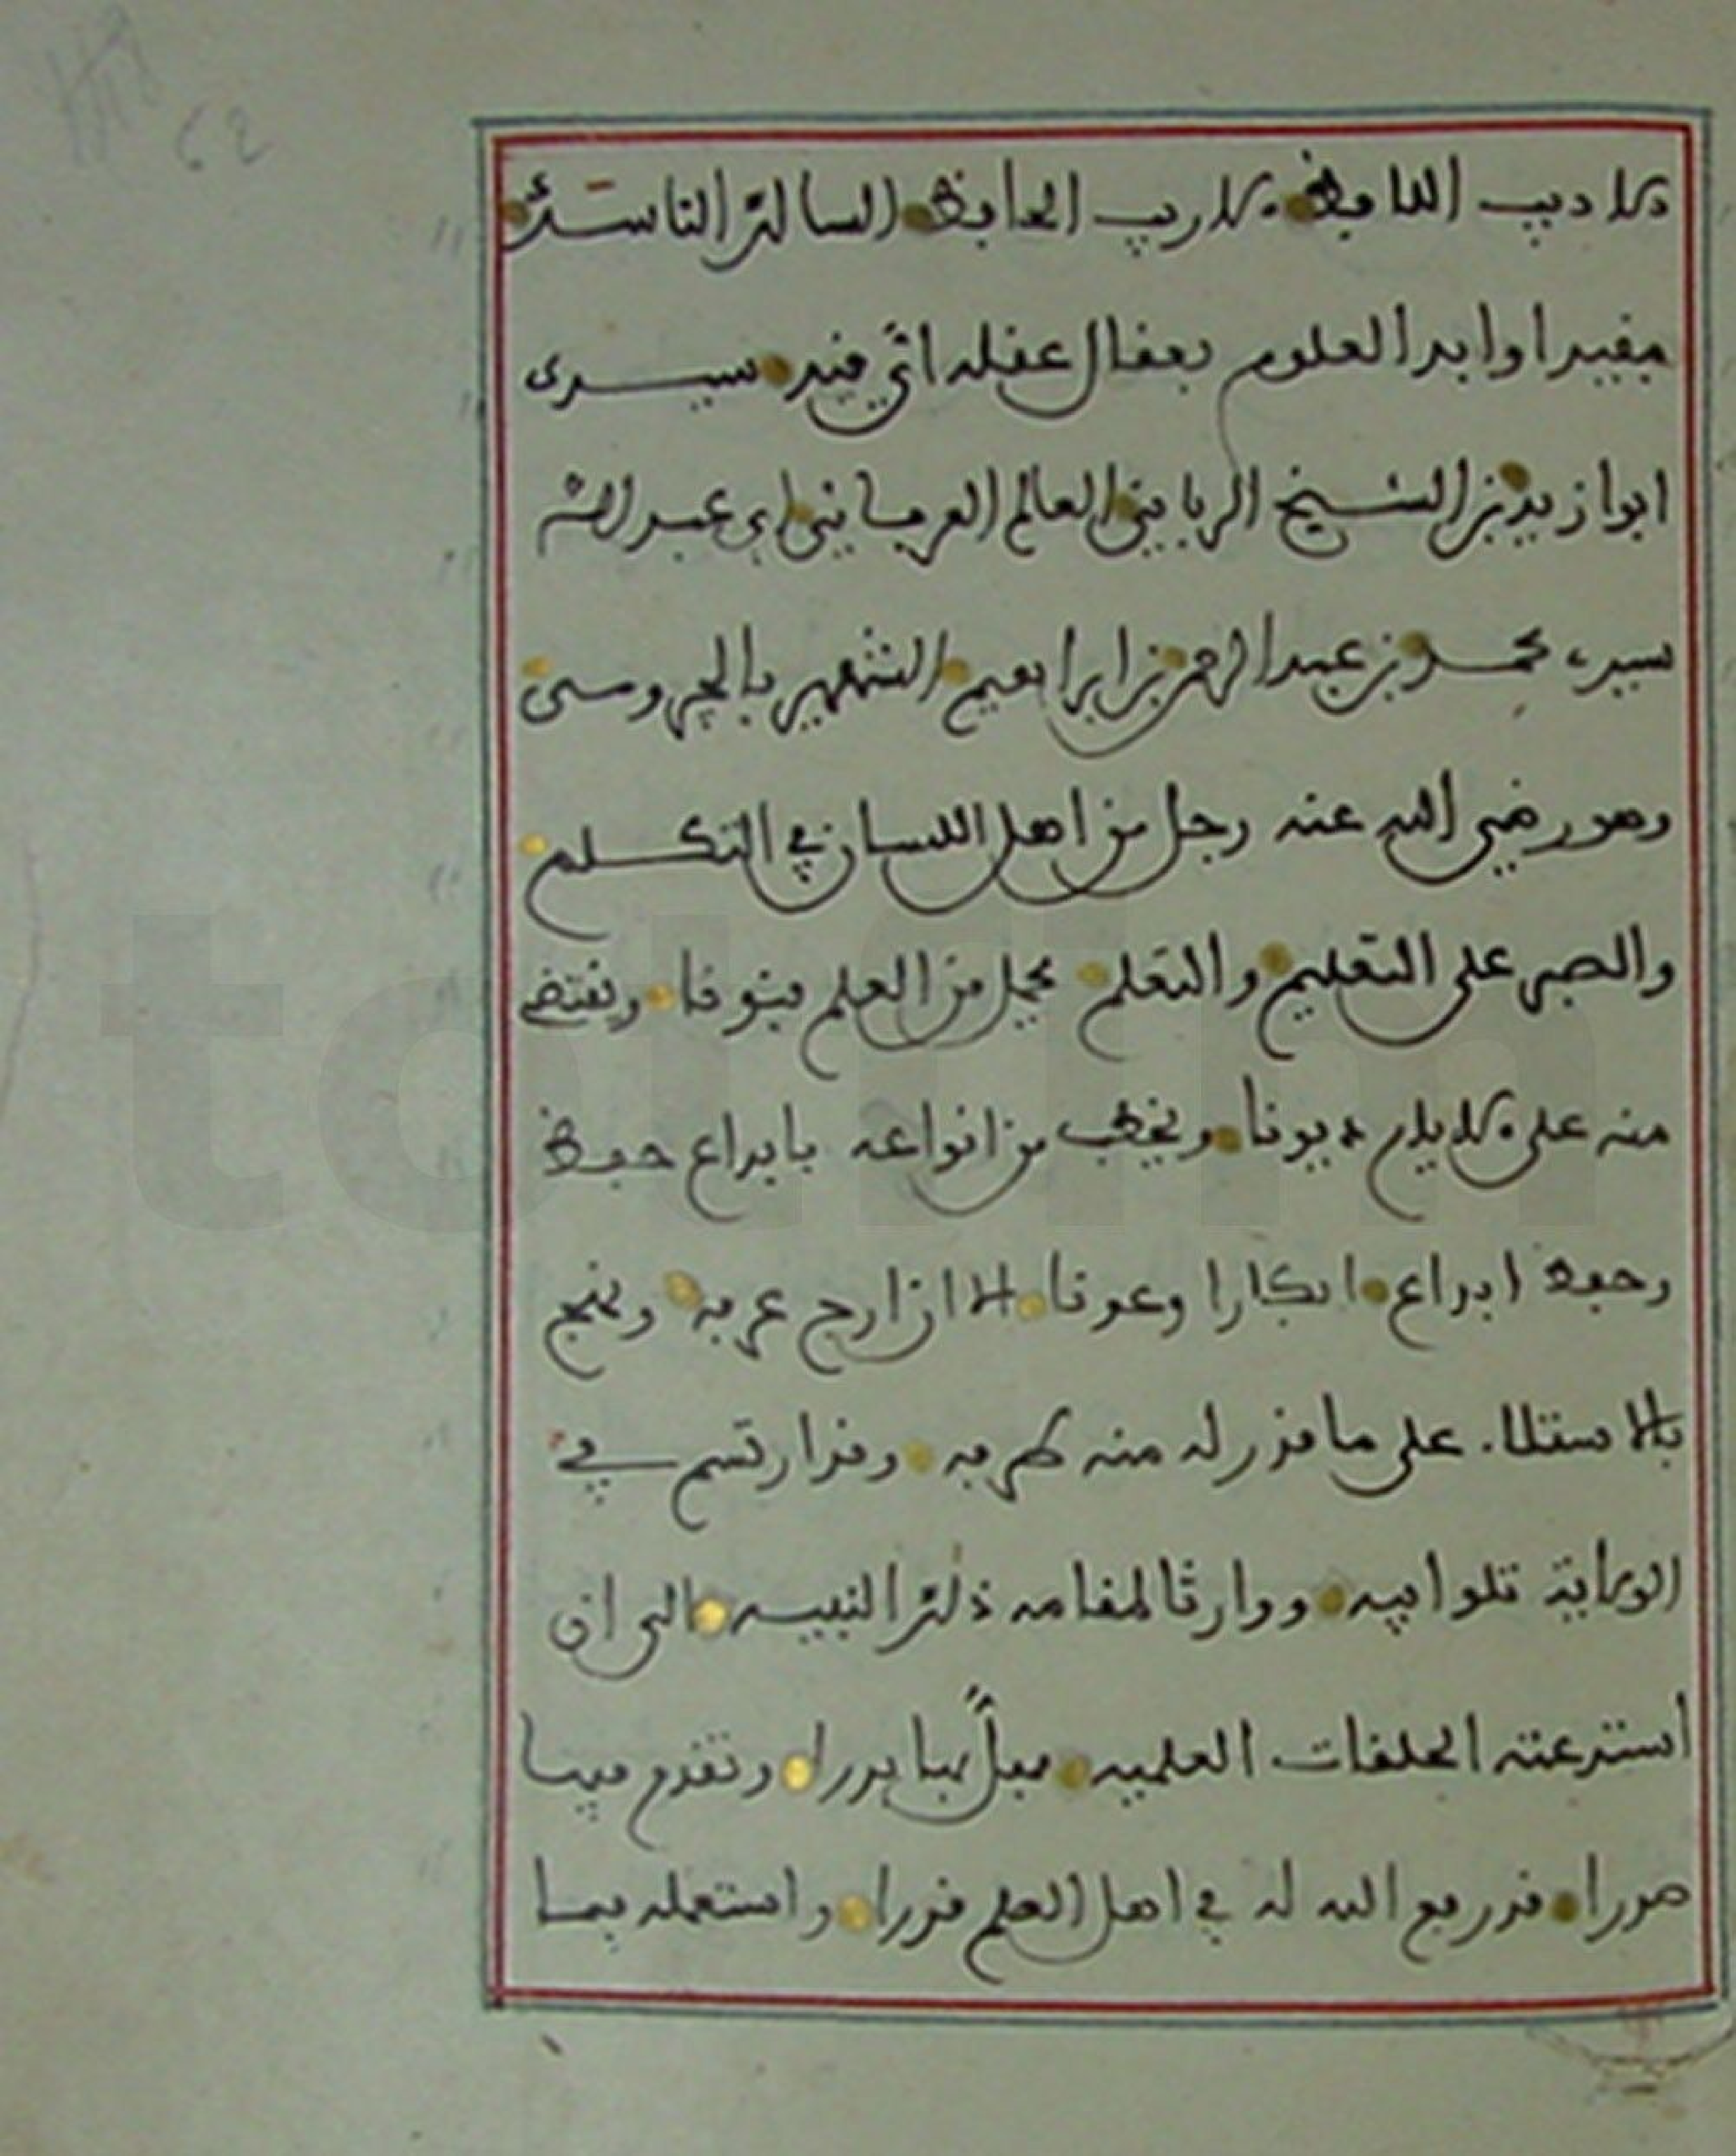 62
الاديب اللافظ الاريب الحافظ السالك الناسك
مقيد اوابد العلوم بعقال عقله اي قيد سيدى
ابو زيد بن الشيخ الرباني العالم العرفاني ابى عبد الله
سيدي محمد بن عبد الرحمن بن ابراهيم الشهير بالجروسى
وهو رضي الله عنه رجل من اهل اللسان في التكلم
والصبر على التعليم والتعلم يحمل من العلم فنونا ويقتضي
منه على الايام ديونا ويخطب من انواعه بابداع حفظ
وحفظ ابداع ابكارا وعونا الا ان ارج عرفه وينم
بالاستقلال على ما قدر له منه طرفه وقد ارتسم في
الوراية تلو ابيه ووارثا لمقامه ذلك النبيه الى ان
استرعته الحلقات العلميه فحل بها بدرا وتقدم فيها
صدرا قد رفع الله له في اهل العلم قدرا واستعمله بما